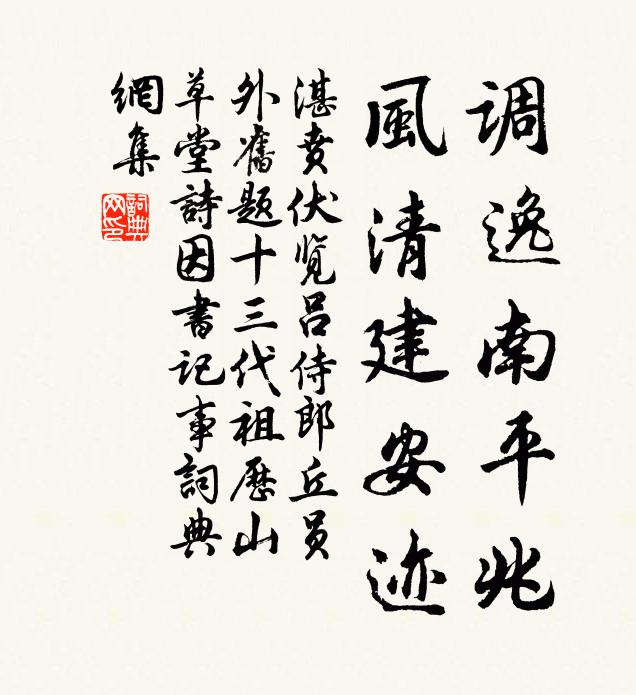 调逸南平兆
風清建安迹
湛贲伏览吕侍郎丘员
外舊题十三代祖歷山
草堂詩因書记事詞典
網集
詞典
网印